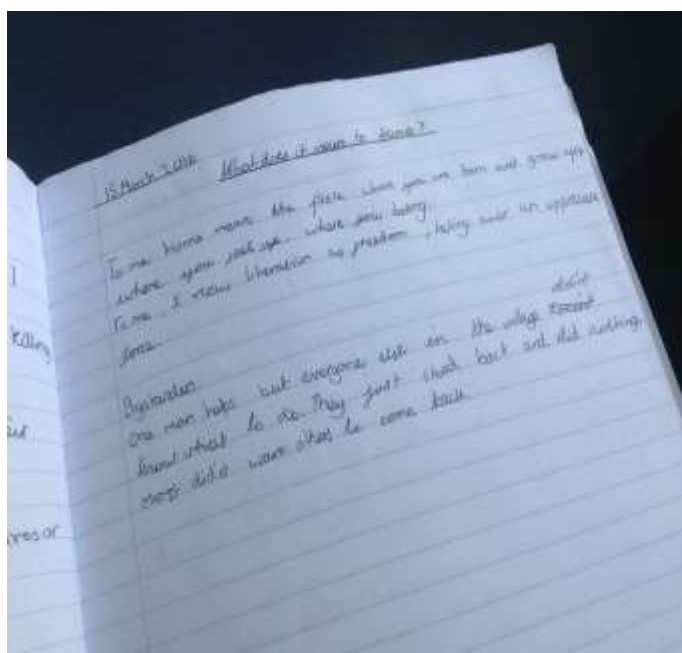 15 March 2016
What does it mean to home?
To me home means the place when you are born and grow up,
where you look up, where you belong.
To me, I view liberation as freedom, taking over an oppressive
zone.
Bystanders
One man helps but everyone else in the village didn't
know what to do. They just stood back and did nothing.
didn't want others to come back
killing